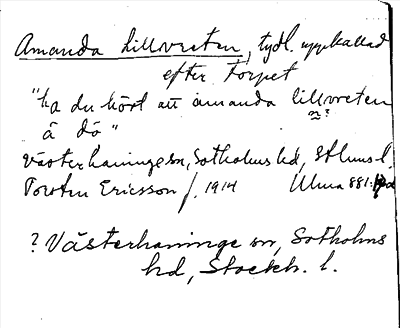 Amanda Lillvreten, tydl. uppkallad
efter Torpet
"ha du hört att amanda lillvreten
n?
ä dö"
Västerhaninge sn, Sotholms hd, Sthlms l.
Torsten Ericsson f. 1914 Ulma 881:
? Västerhaninge sn, Sotholms
hd, Stockh. l.